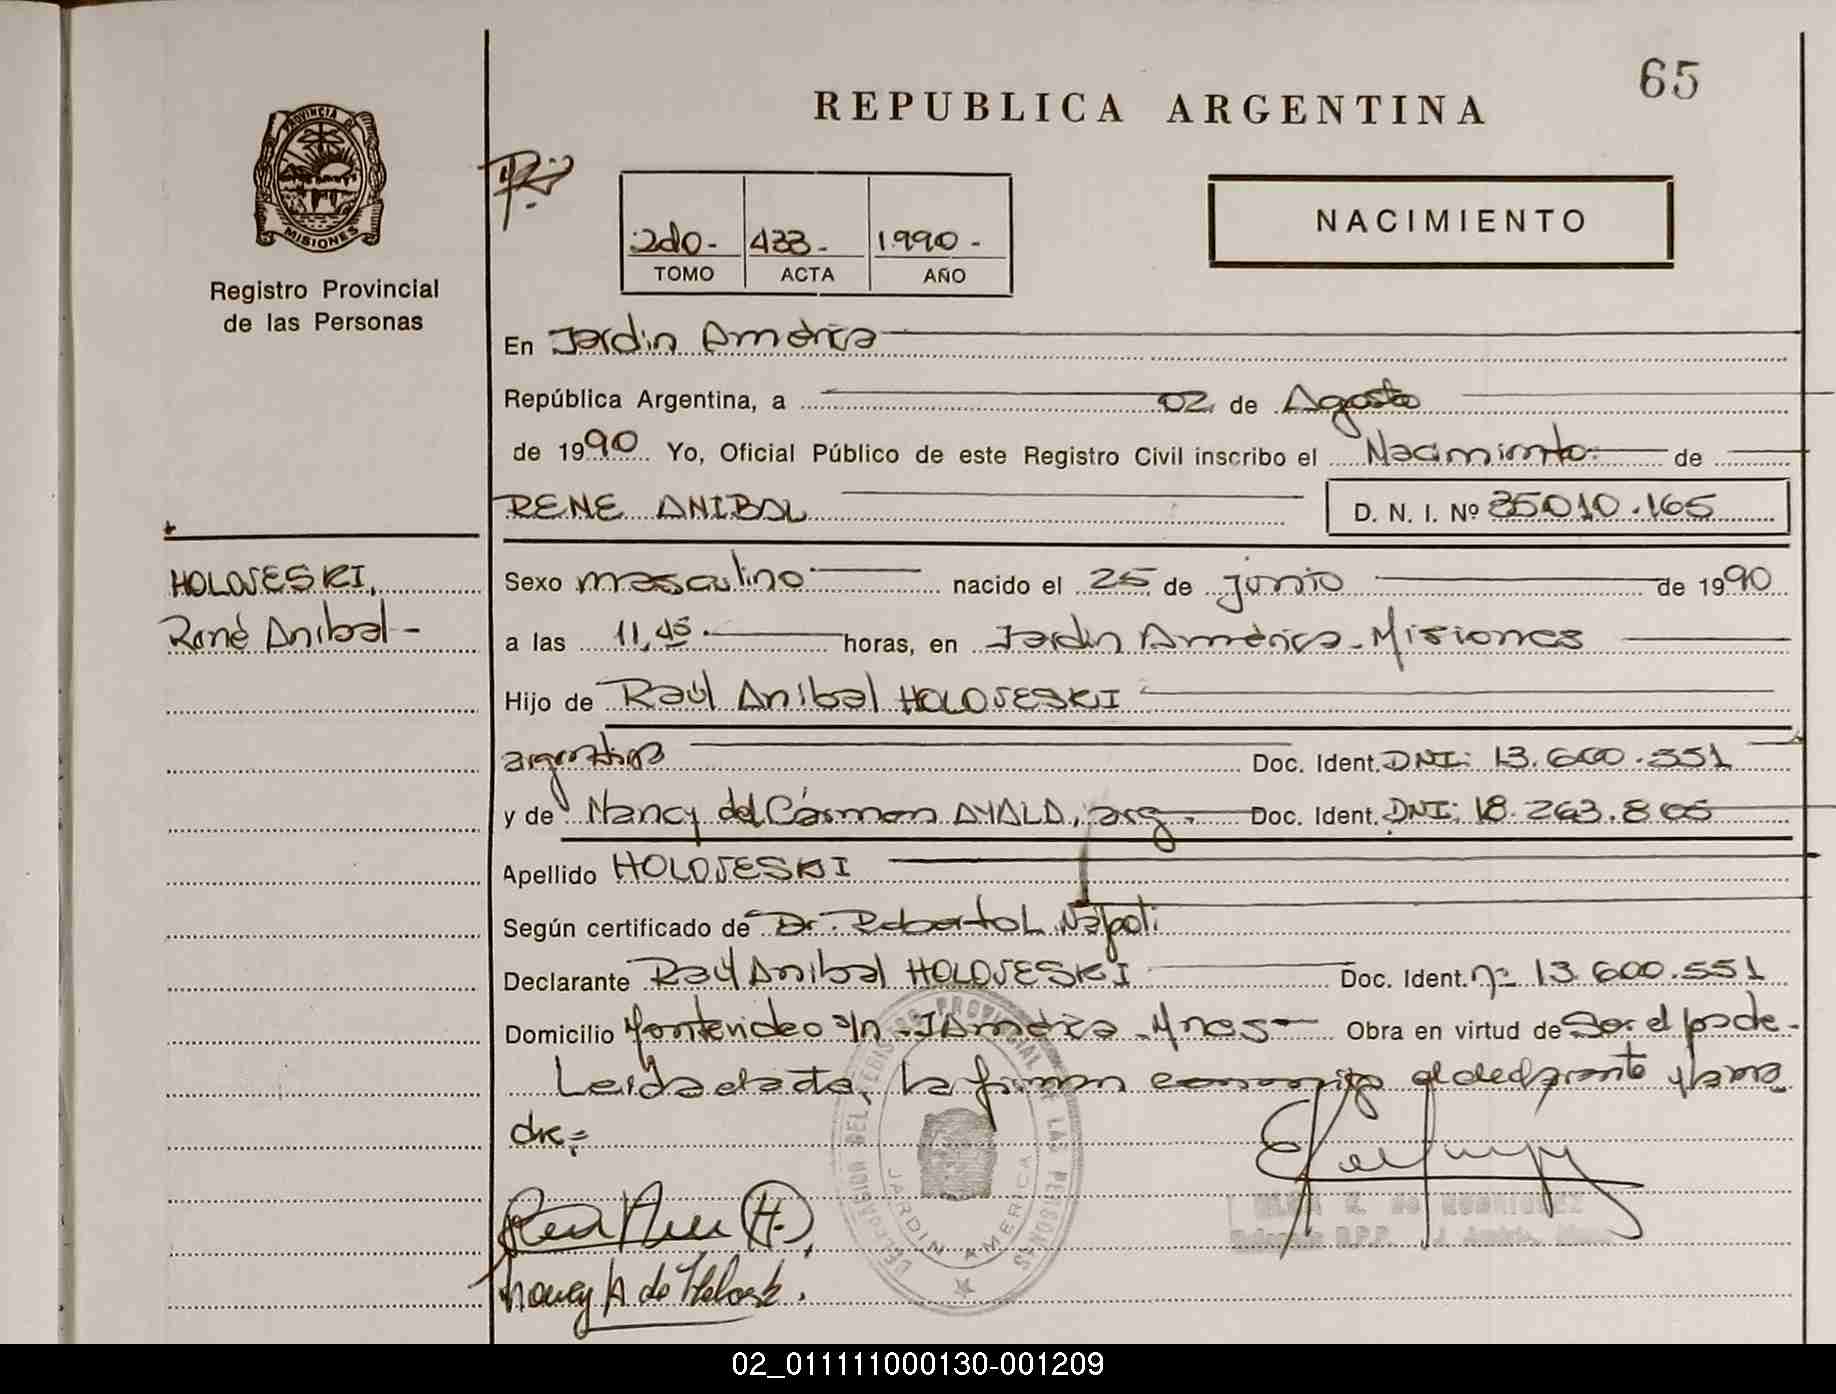 65
REPUBLICA ARGENTINA
PROVINCIA DE
MISIONES
Registro Provincial
de las Personas
2do- 433- 1990-
TOMO ACTA AÑO
NACIMIENTO
En Jardin América
República Argentina, a 02 de Agosto
de 1990 Yo, Oficial Público de este Registro Civil inscribo el Nacimiento de
RENE ANIBAL D. N. I. Nº 35010.165
HOLOJESKI,
René Anibal-
Sexo masculino nacido el 25 de junio de 1990
a las 11,45 horas, en Jardin América-Misiones
Hijo de Raúl Anibal HOLOJESKI
argentino Doc. Ident. DNI: 13.600.551
y de Nancy del Cármen AYALA, arg. Doc. Ident. DNI: 18.263.805
Apellido HOLOJESKI
Según certificado de Dr. Roberto L. Nápoli
Declarante Raúl Anibal HOLOJESKI Doc. Ident. nº 13.600.551
Domicilio Montevideo s/n - JAmérica - Mnes- Obra en virtud de Ser el padre.-
Leida el acta, la firman conmigo el declarante y la ma-
dre=
DELEGACION DEL REGISTRO PROVINCIAL DE LAS PERSONAS
JARDIN AMERICA
Nancy A de
02_011111000130-001209